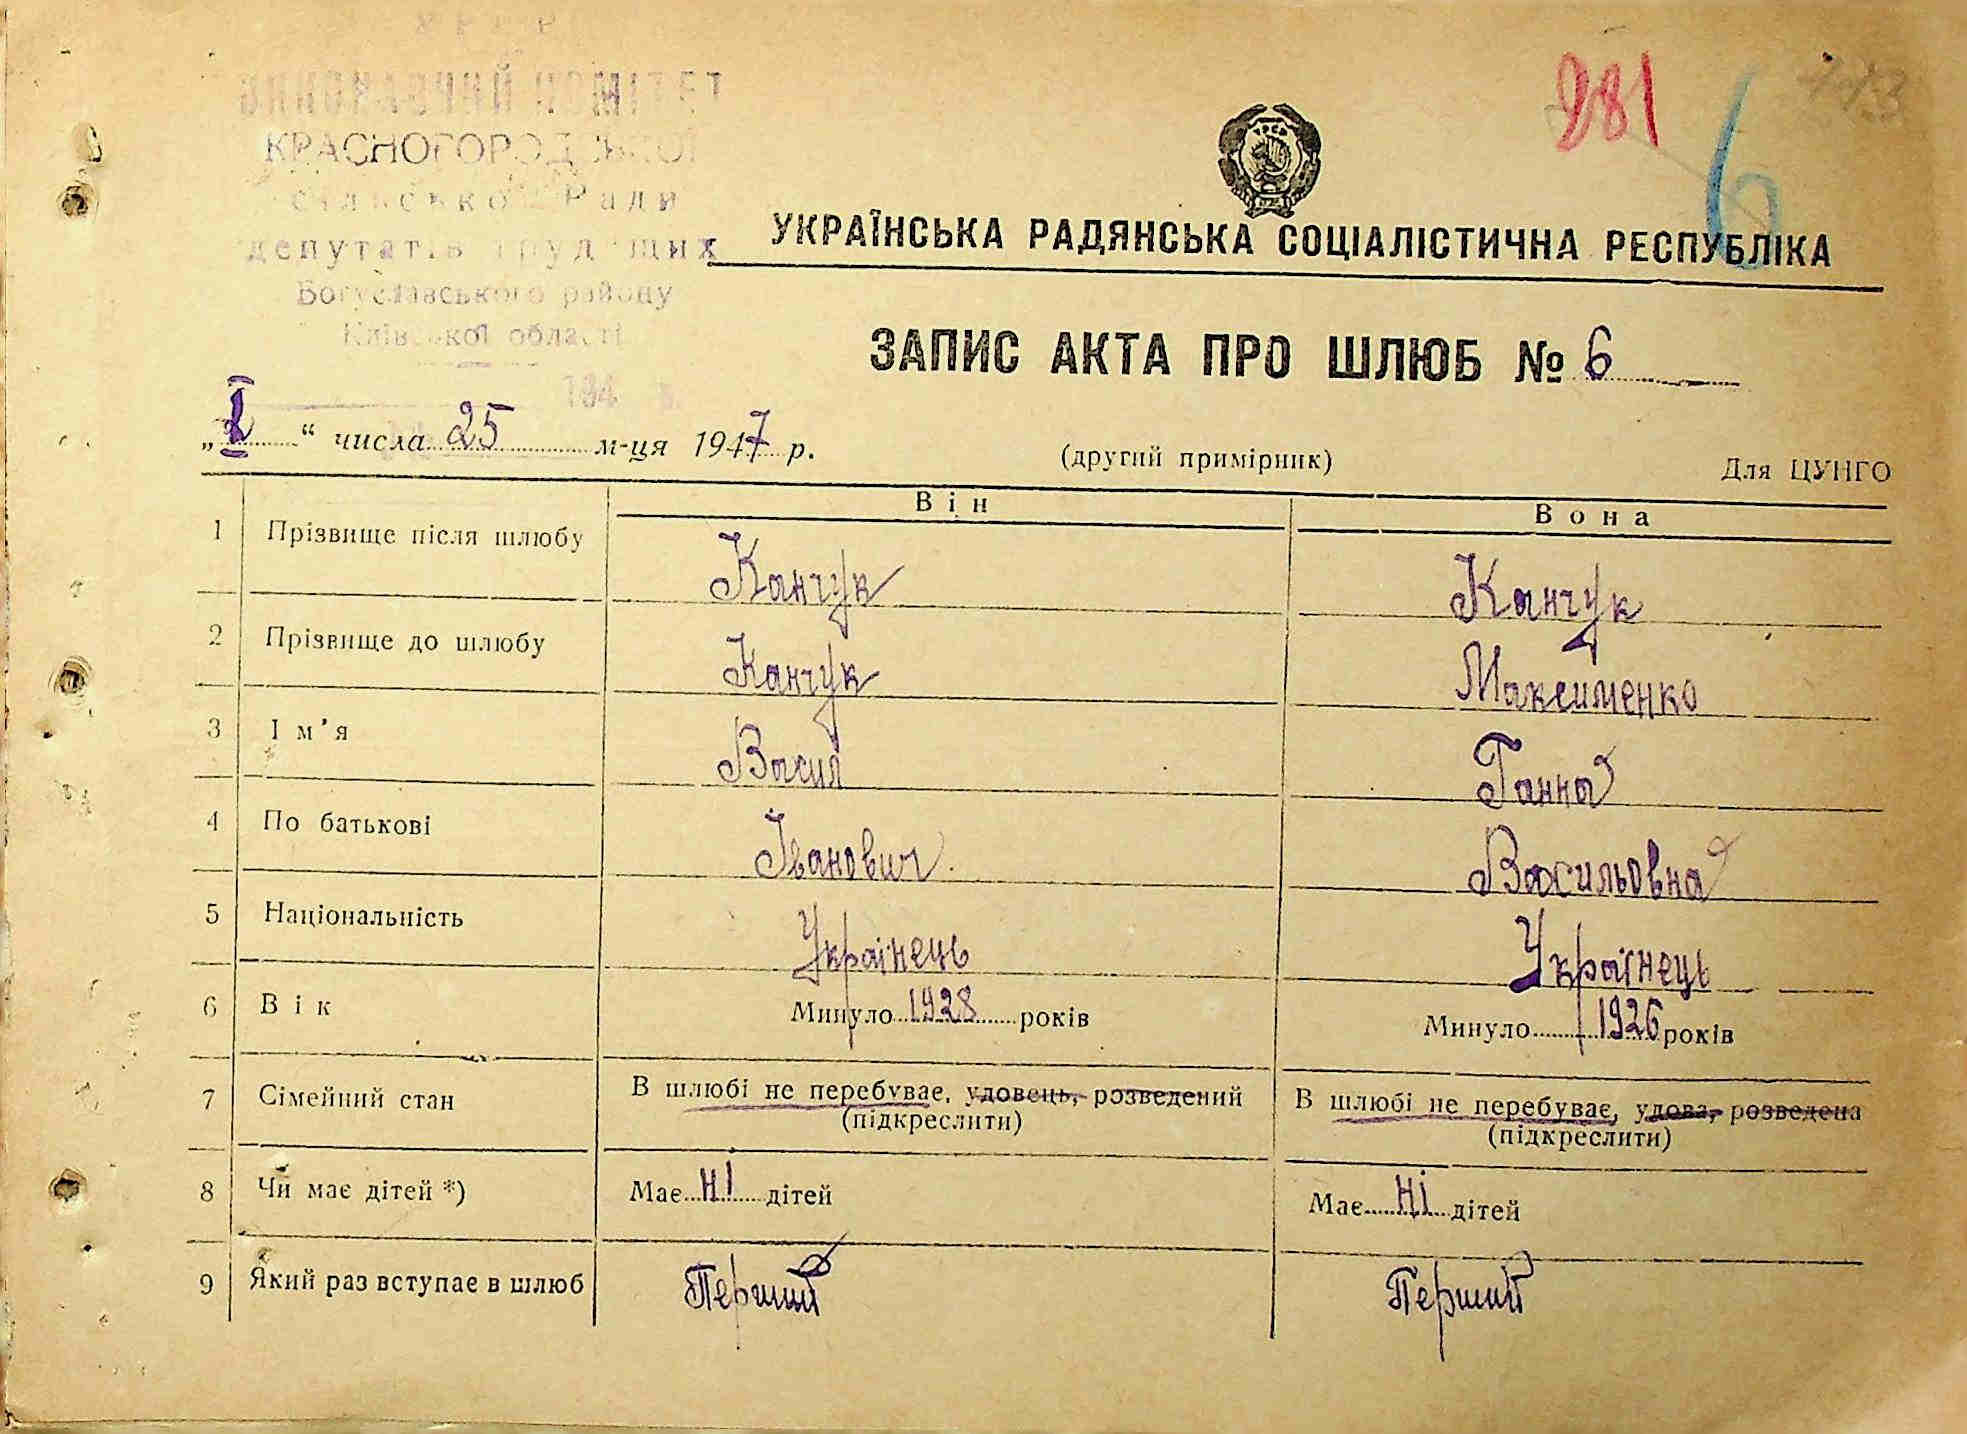 УРСР
ВИКОНАВЧИЙ КОМІТЕТ
КРАСНОГОРОДСЬКОЇ
сільської Ради
депутатів трудящих
Богуславського району
Київської області
194 р.
981 6
УРСР
УКРАЇНСЬКА РАДЯНСЬКА СОЦІАЛІСТИЧНА РЕСПУБЛІКА
ЗАПИС АКТА ПРО ШЛЮБ № 6
„I“ числа 25 м-ця 1947 р.
(другий примірник)
Для ЦУНГО
Він Вона
1 Прізвище після шлюбу Канчук Канчук
2 Прізвище до шлюбу Канчук Максименко
3 Ім'я Васил Ганна
4 По батькові Іванович Васильовна
5 Національність Українець Українець
6 Вік Минуло 1928 років Минуло 1926 років
7 Сімейний стан В шлюбі не перебуває, удовець, розведений В шлюбі не перебуває, удова, розведена
(підкреслити) (підкреслити)
8 Чи має дітей *) Має ні дітей Має ні дітей
9 Який раз вступає в шлюб Перший Перший